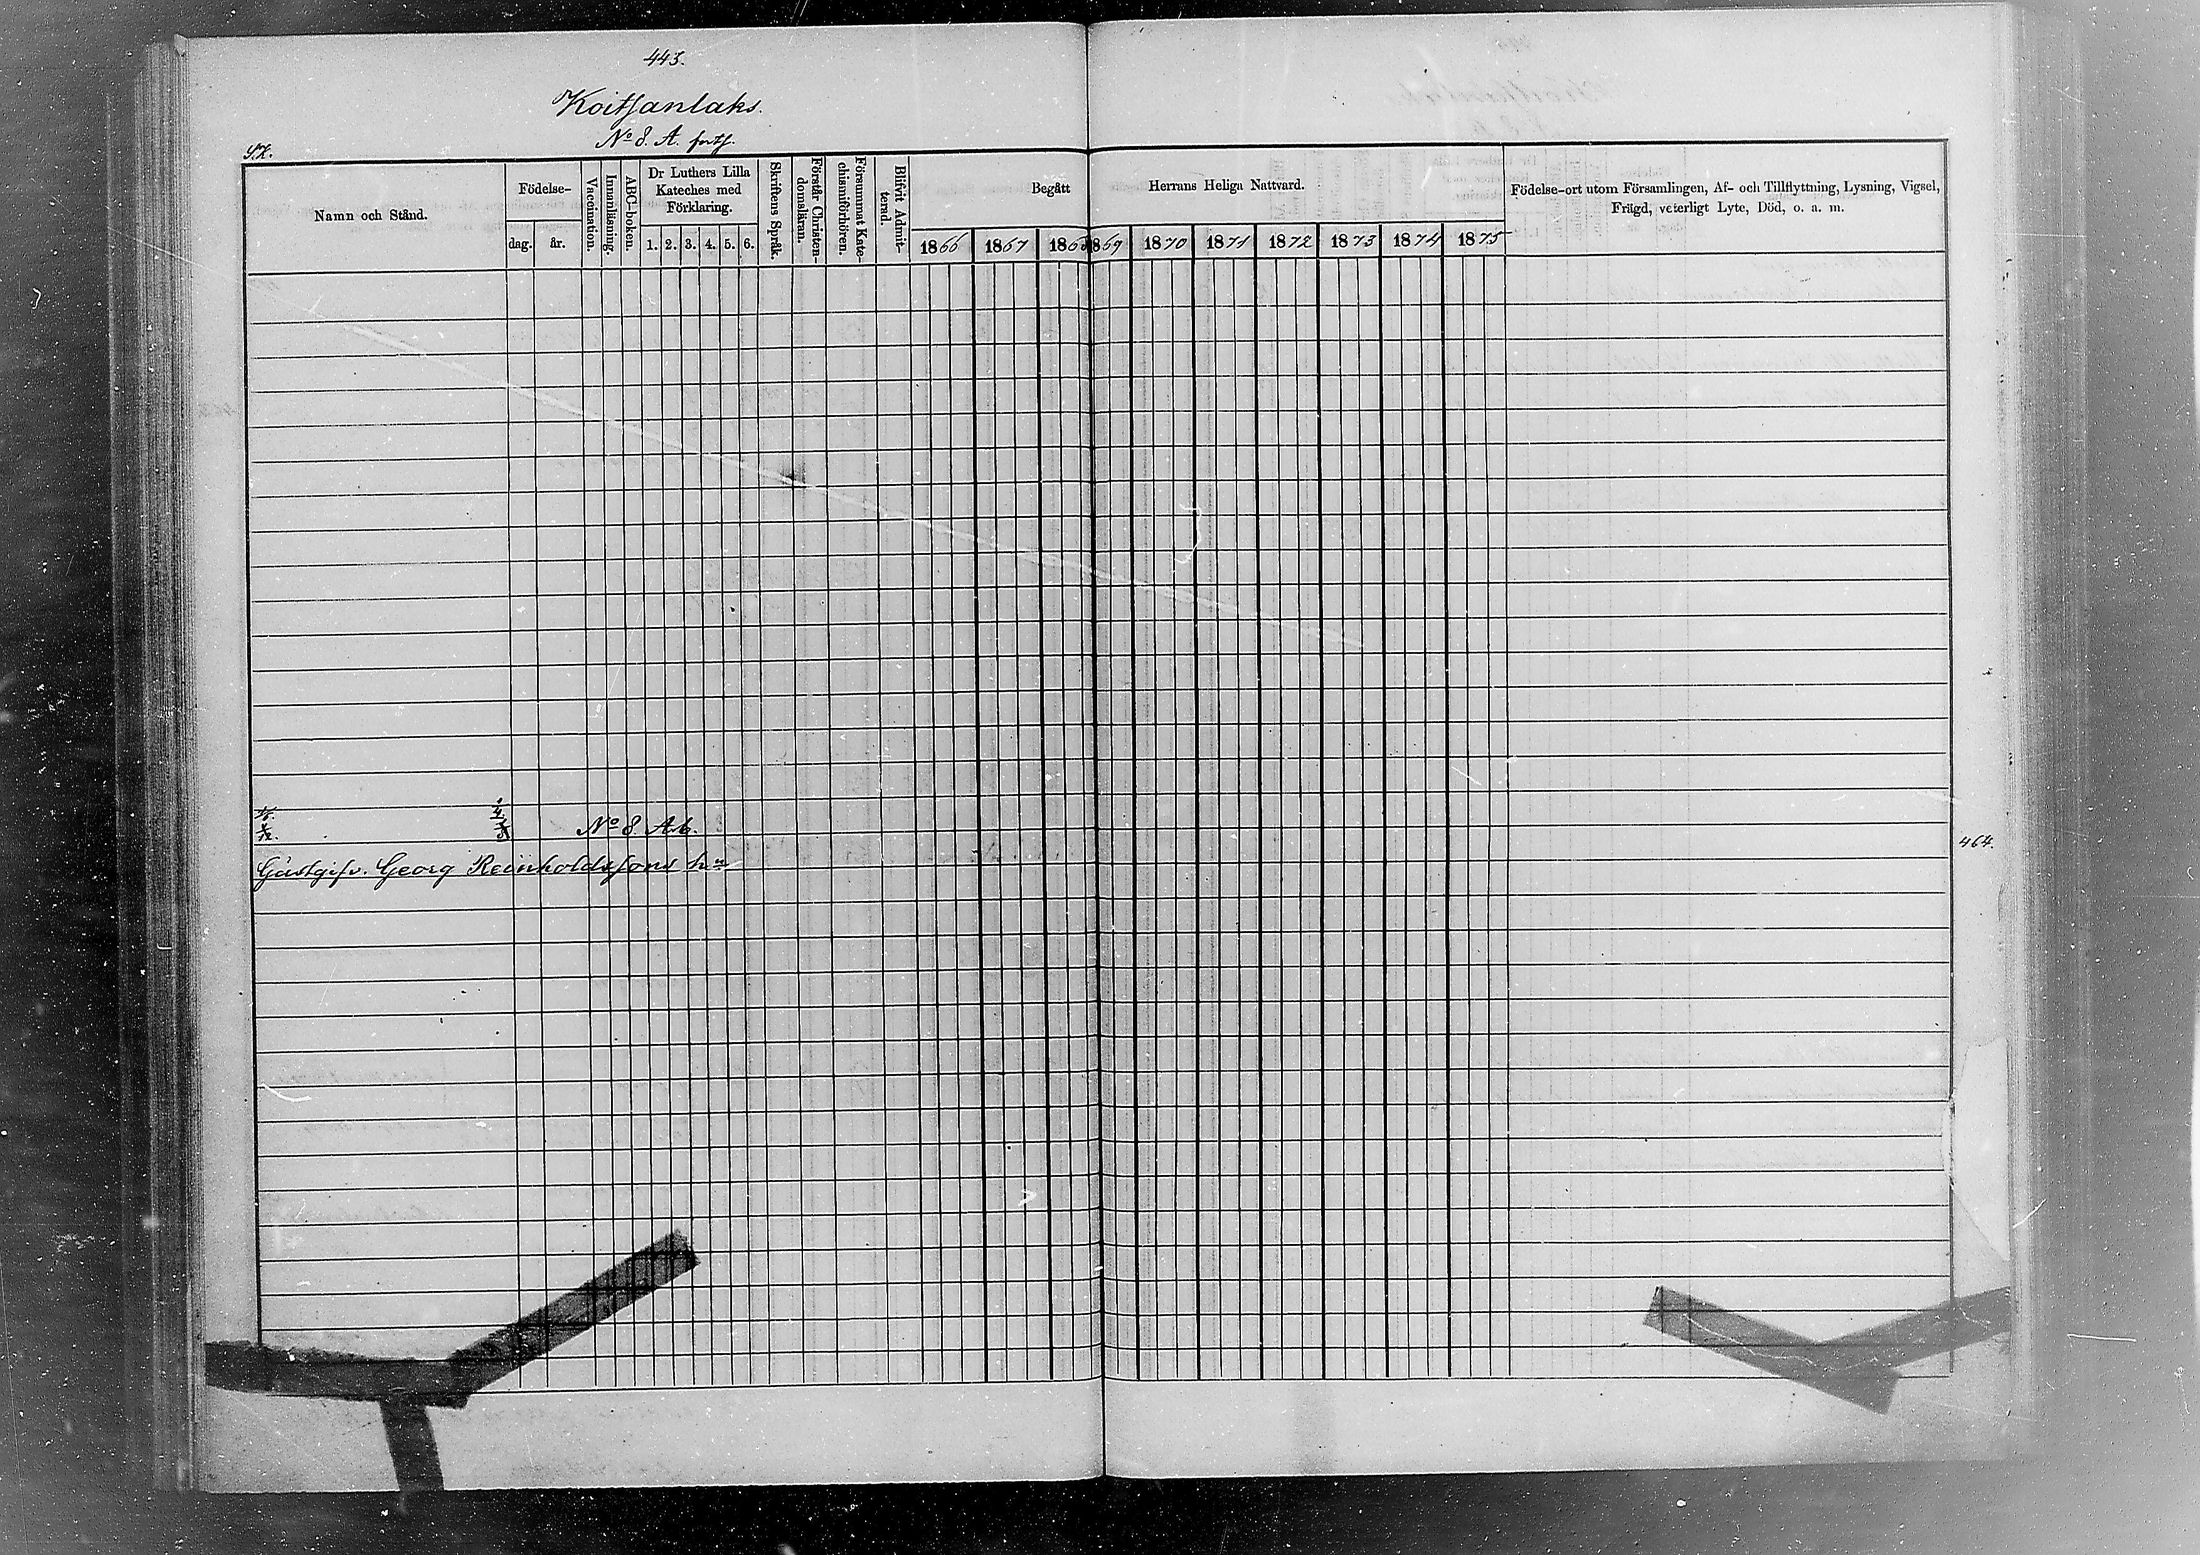 443.
Koitsanlaks.
No 8. A. forts.
S.K.
Namn och Stånd.
Födelse-
dag.
år.
Vaccination.
Innanläsning.
ABC-boken.
Dr Luthers Lilla
Kateches med
Förklaring.
1. 2. 3. 4. 5. 6.
Skriftens Språk.
Förstår Christen-
domsläran.
Försummat Kate-
chismiförhören.
Blifvit Admit-
terad.
Begått Herrans Heliga Nattvard.
1866 1867 1868 1869 1870 1871 1872 1873 1874 1875
Födelse-ort utom Församlingen, Af- och Tillflyttning, Lysning, Vigsel,
Frägd, veterligt Lyte, Död, o. a. m.
No 8. A.b.
464.
Gästgifv. Georg Reinholdssons hn